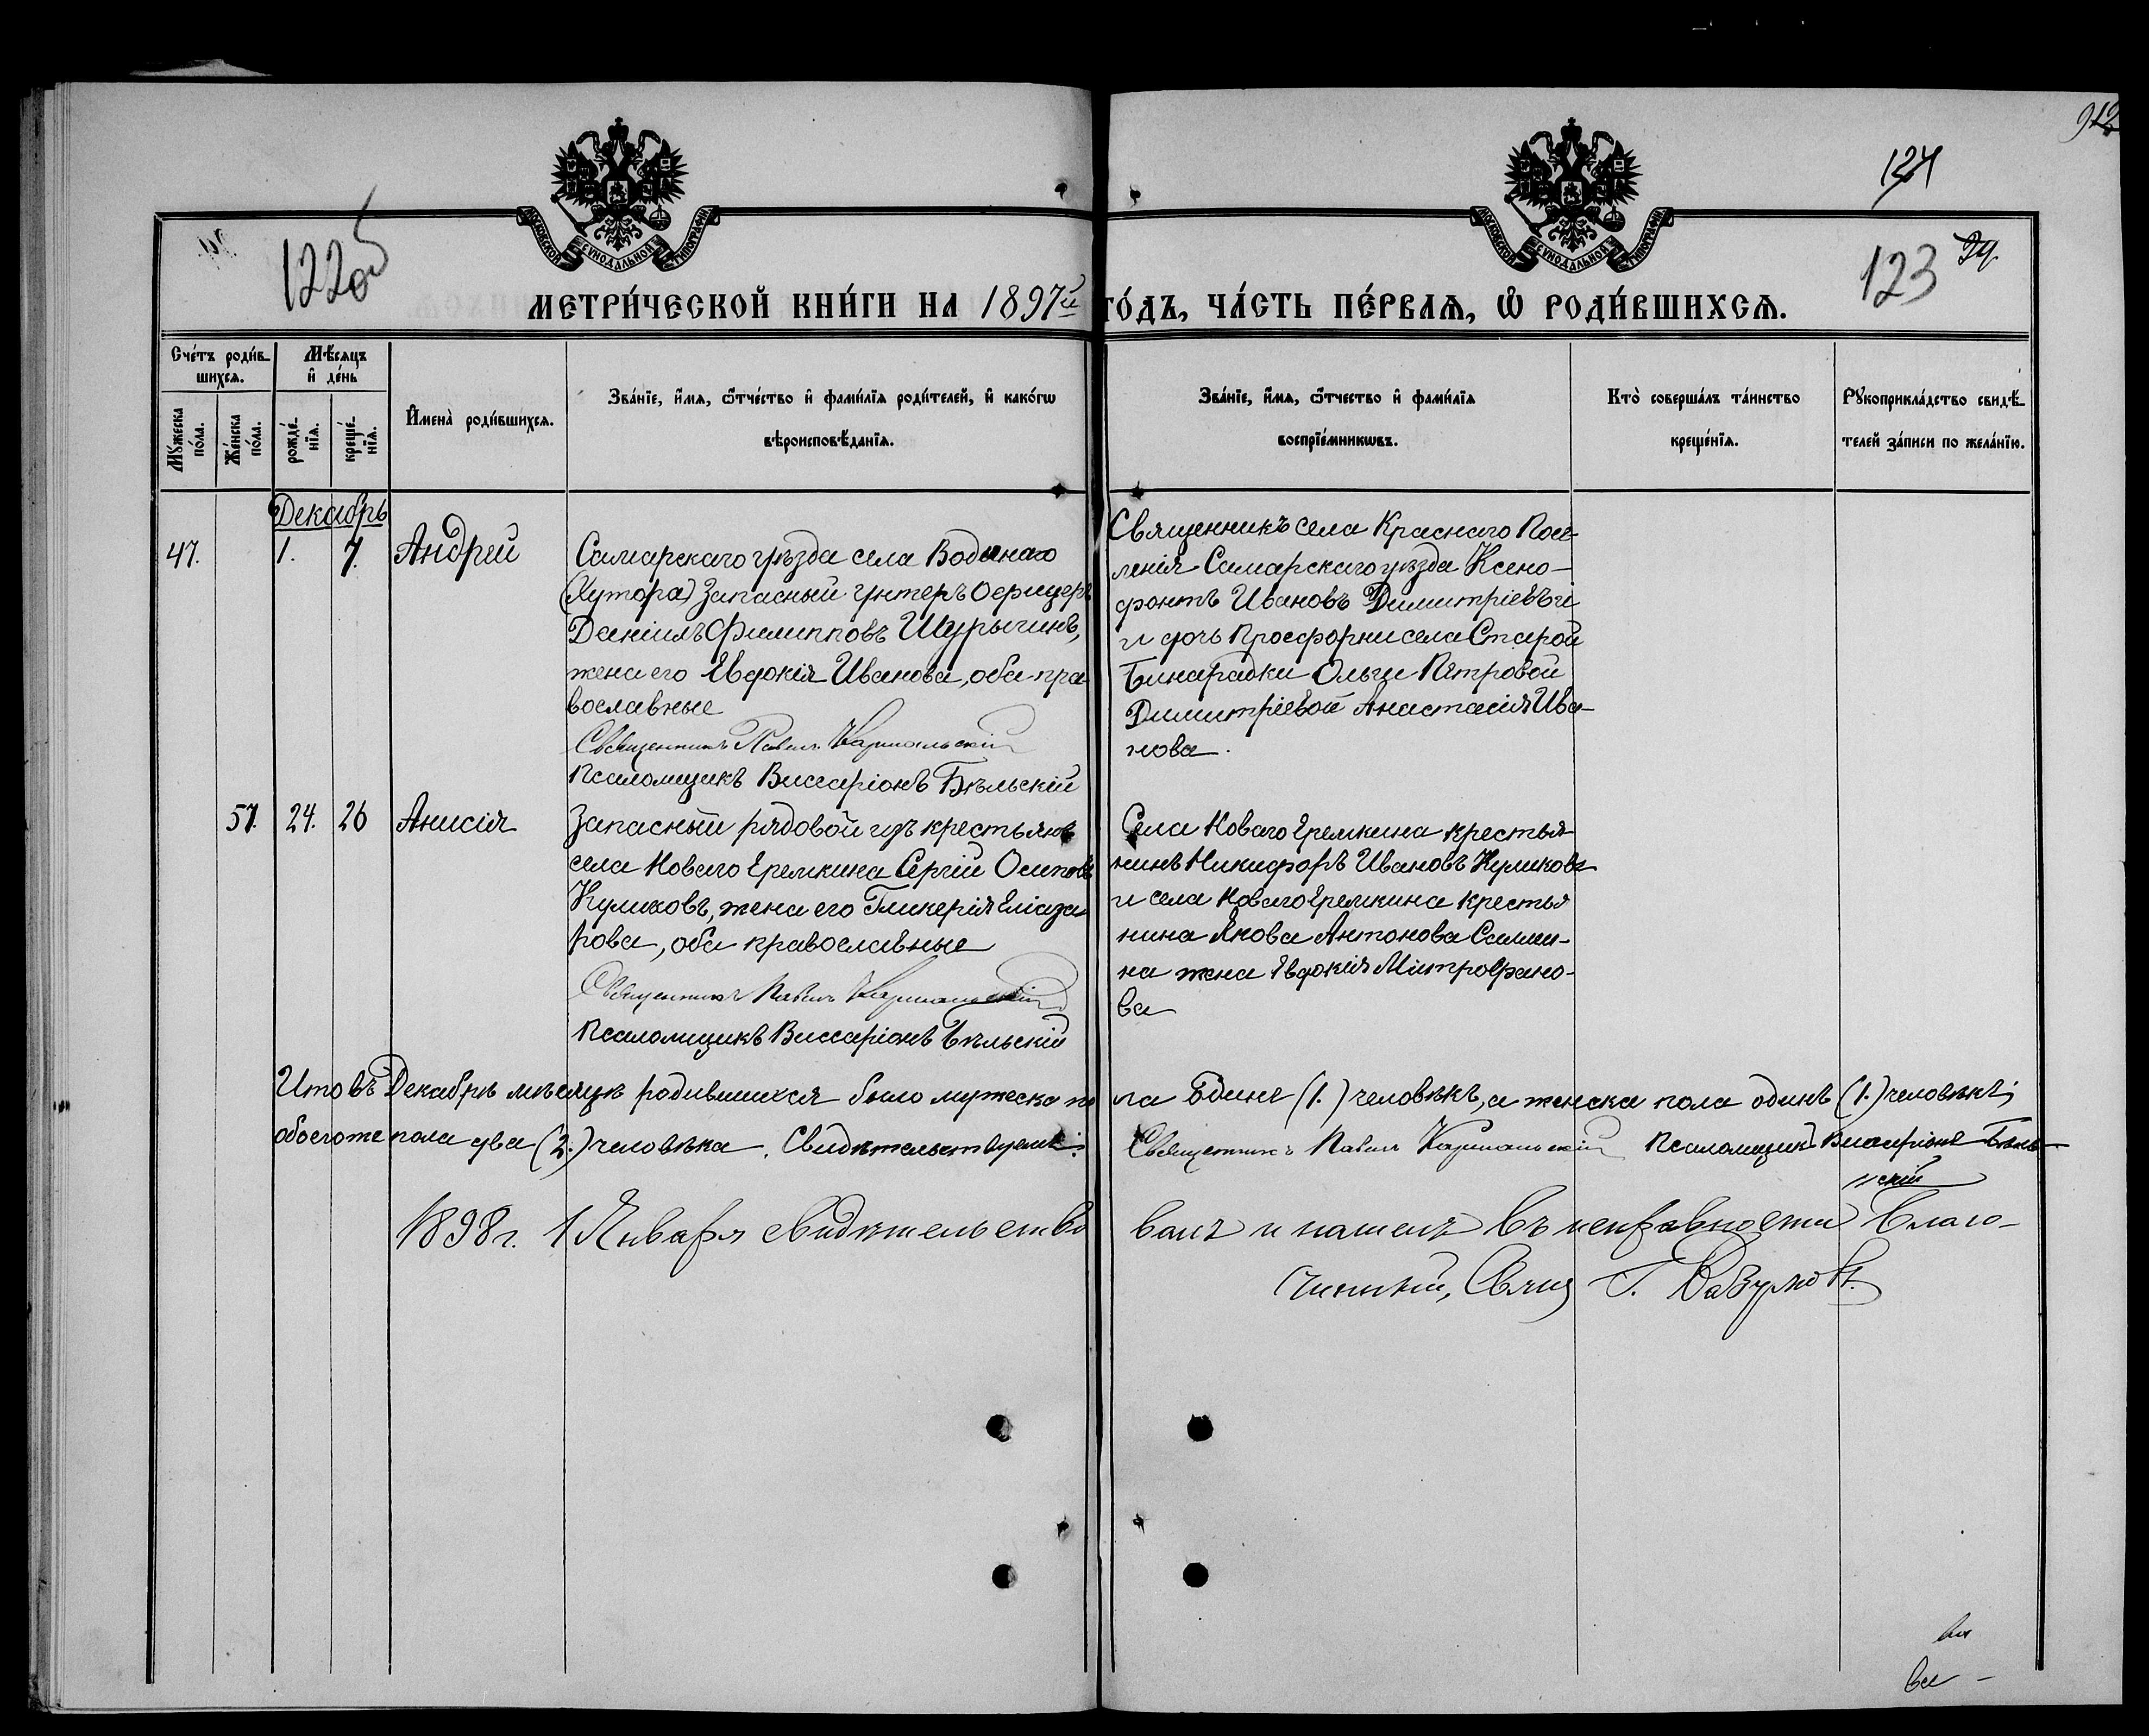 912
124
МОСКОВСКОЙ СѴНОДАЛЬНОЙ ТИПОГРАФІИ
МОСКОВСКОЙ СѴНОДАЛЬНОЙ ТИПОГРАФІИ
122об
123
МЕТРИ́ЧЕСКОЙ КНИ́ГИ НА 1897й ГО́ДЪ, ЧА́СТЬ ПЕ́РВАѦ, Ѡ҆ РОДИ́ВШИХСѦ.
Сче́тъ роди́вшихсѧ.
Мꙋ́жеска по́ла.
Же́нска по́ла.
Мѣ́сѧцъ и҆ де́нь
рожде́нїѧ.
креще́нїѧ.
И҆мена̀ роди́вшихсѧ.
Зва́нїе, и҆́мѧ, ѻ҆́тчество и҆ фами́лїѧ роди́телей, и҆ како́гѡ
вѣроисповѣ́данїѧ.
Зва́нїе, и҆́мѧ, ѻ҆́тчество и҆ фами́лїѧ
воспрїе́мникѡвъ.
Кто̀ соверша́лъ та́инство
креще́нїѧ.
Рꙋкоприкла́дство свидѣ́-
телей за́писи по жела́нїю.
Декабрь
47. 1. 7. Андрей
Самарскаго уѣзда села Водянаго
(Хутора) Запасный унтеръ офицеръ
Даніилъ Филипповъ Шурыгинъ,
жена его Евдокія Иванова, оба пра
вославные
Священникъ Павелъ Кармальскій
Псаломщикъ Виссаріонъ Бѣльскій
Священникъ села Краснаго Посе-
ленія Самарскаго уѣзда Ксено-
фонтъ Ивановъ Димитріевъ и
и дочь Просфорни села Старой
Бинарадки Ольги Петровой
Димитріевой Анастасія Ива-
нова.
57. 24. 26 Анисія
Запасный рядовой изъ крестьянъ
села Новаго Еремкина Сергій Осиповъ
Куликовъ, жена его Гликерія Еліаза
рова, оба православные
Священникъ Павелъ Кармальскій
Псаломщикъ Виссаріонъ Бѣльскій
Села Новаго Еремкина крестья
нинъ Никифоръ Ивановъ Куликовъ
и села Новаго Еремкина крестья
нина Якова Антонова Салми-
на жена Евдокія Митрофано-
ва
Итого въ Декабрѣ мѣсяцѣ родившихся было мужеска по ла Единъ (1.) человѣкъ, а женска пола одинъ (1.) человѣкъ;
обоегоже пола два (2.) человѣка. Свидѣтельствуемъ: Священникъ Павелъ Кармальскій Псаломщикъ Виссаріонъ Бѣль-
скій
1898 г. 1 Января свидѣтельство валъ и нашелъ въ исправности Благо-
чинный, Свящ Г.